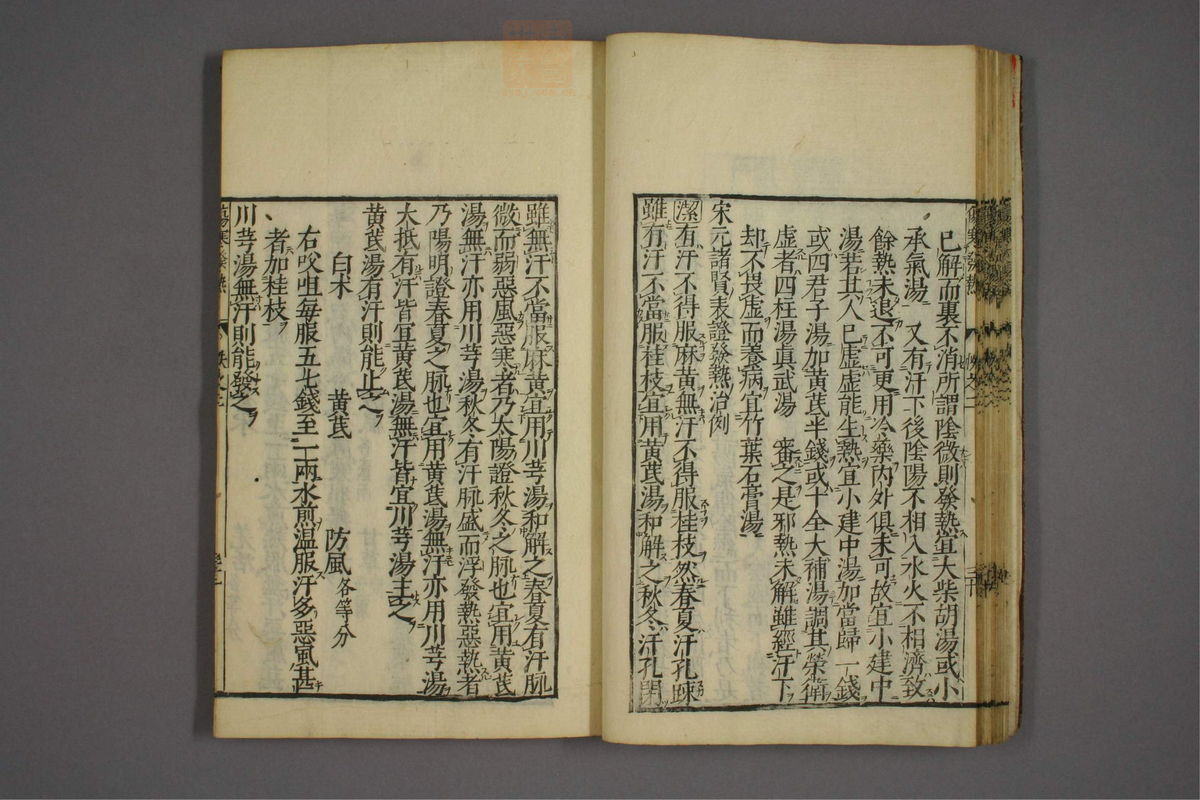 已解而裏不消所謂陰微則發熱宜大柴胡湯或小
承氣湯　又有汗下後陰陽不相入水火不相濟致
餘熱未退不可更用冷藥內外俱未可故宜小建中
湯若其人已虛虛能生熱宜小建中湯加當歸一錢
或四君子湯加黃芪半錢或十全大補湯調其榮衛
虛者四柱湯眞武湯　審之是邪熱未解雖經汗下
却不畏虛而養病宜竹葉石膏湯
宋元諸賢表證發熱治例
潔有汗不得服麻黃無汗不得服桂枝然春夏汗孔踈
雖有汗不當服桂枝宜用黃芪湯和解之秋冬汗孔閉
雖無汗不當服麻黃宜用川芎湯和解之春夏有汗脉
微而弱惡風惡寒者乃太陽證秋冬之脉也宜用黃芪
湯無汗亦用川芎湯秋冬有汗脉盛而浮發熱惡熱者
乃陽明證春夏之脉也宜用黃芪湯無汗亦用川芎湯
大抵有汗皆宜黃芪湯無汗皆宜川芎湯主之
黃芪湯有汗則能止之
白朮　黃芪　防風各等分
右㕮咀每服五七錢至一二兩水煎溫服汗多惡風甚
者加桂枝
川芎湯無汗則能發之